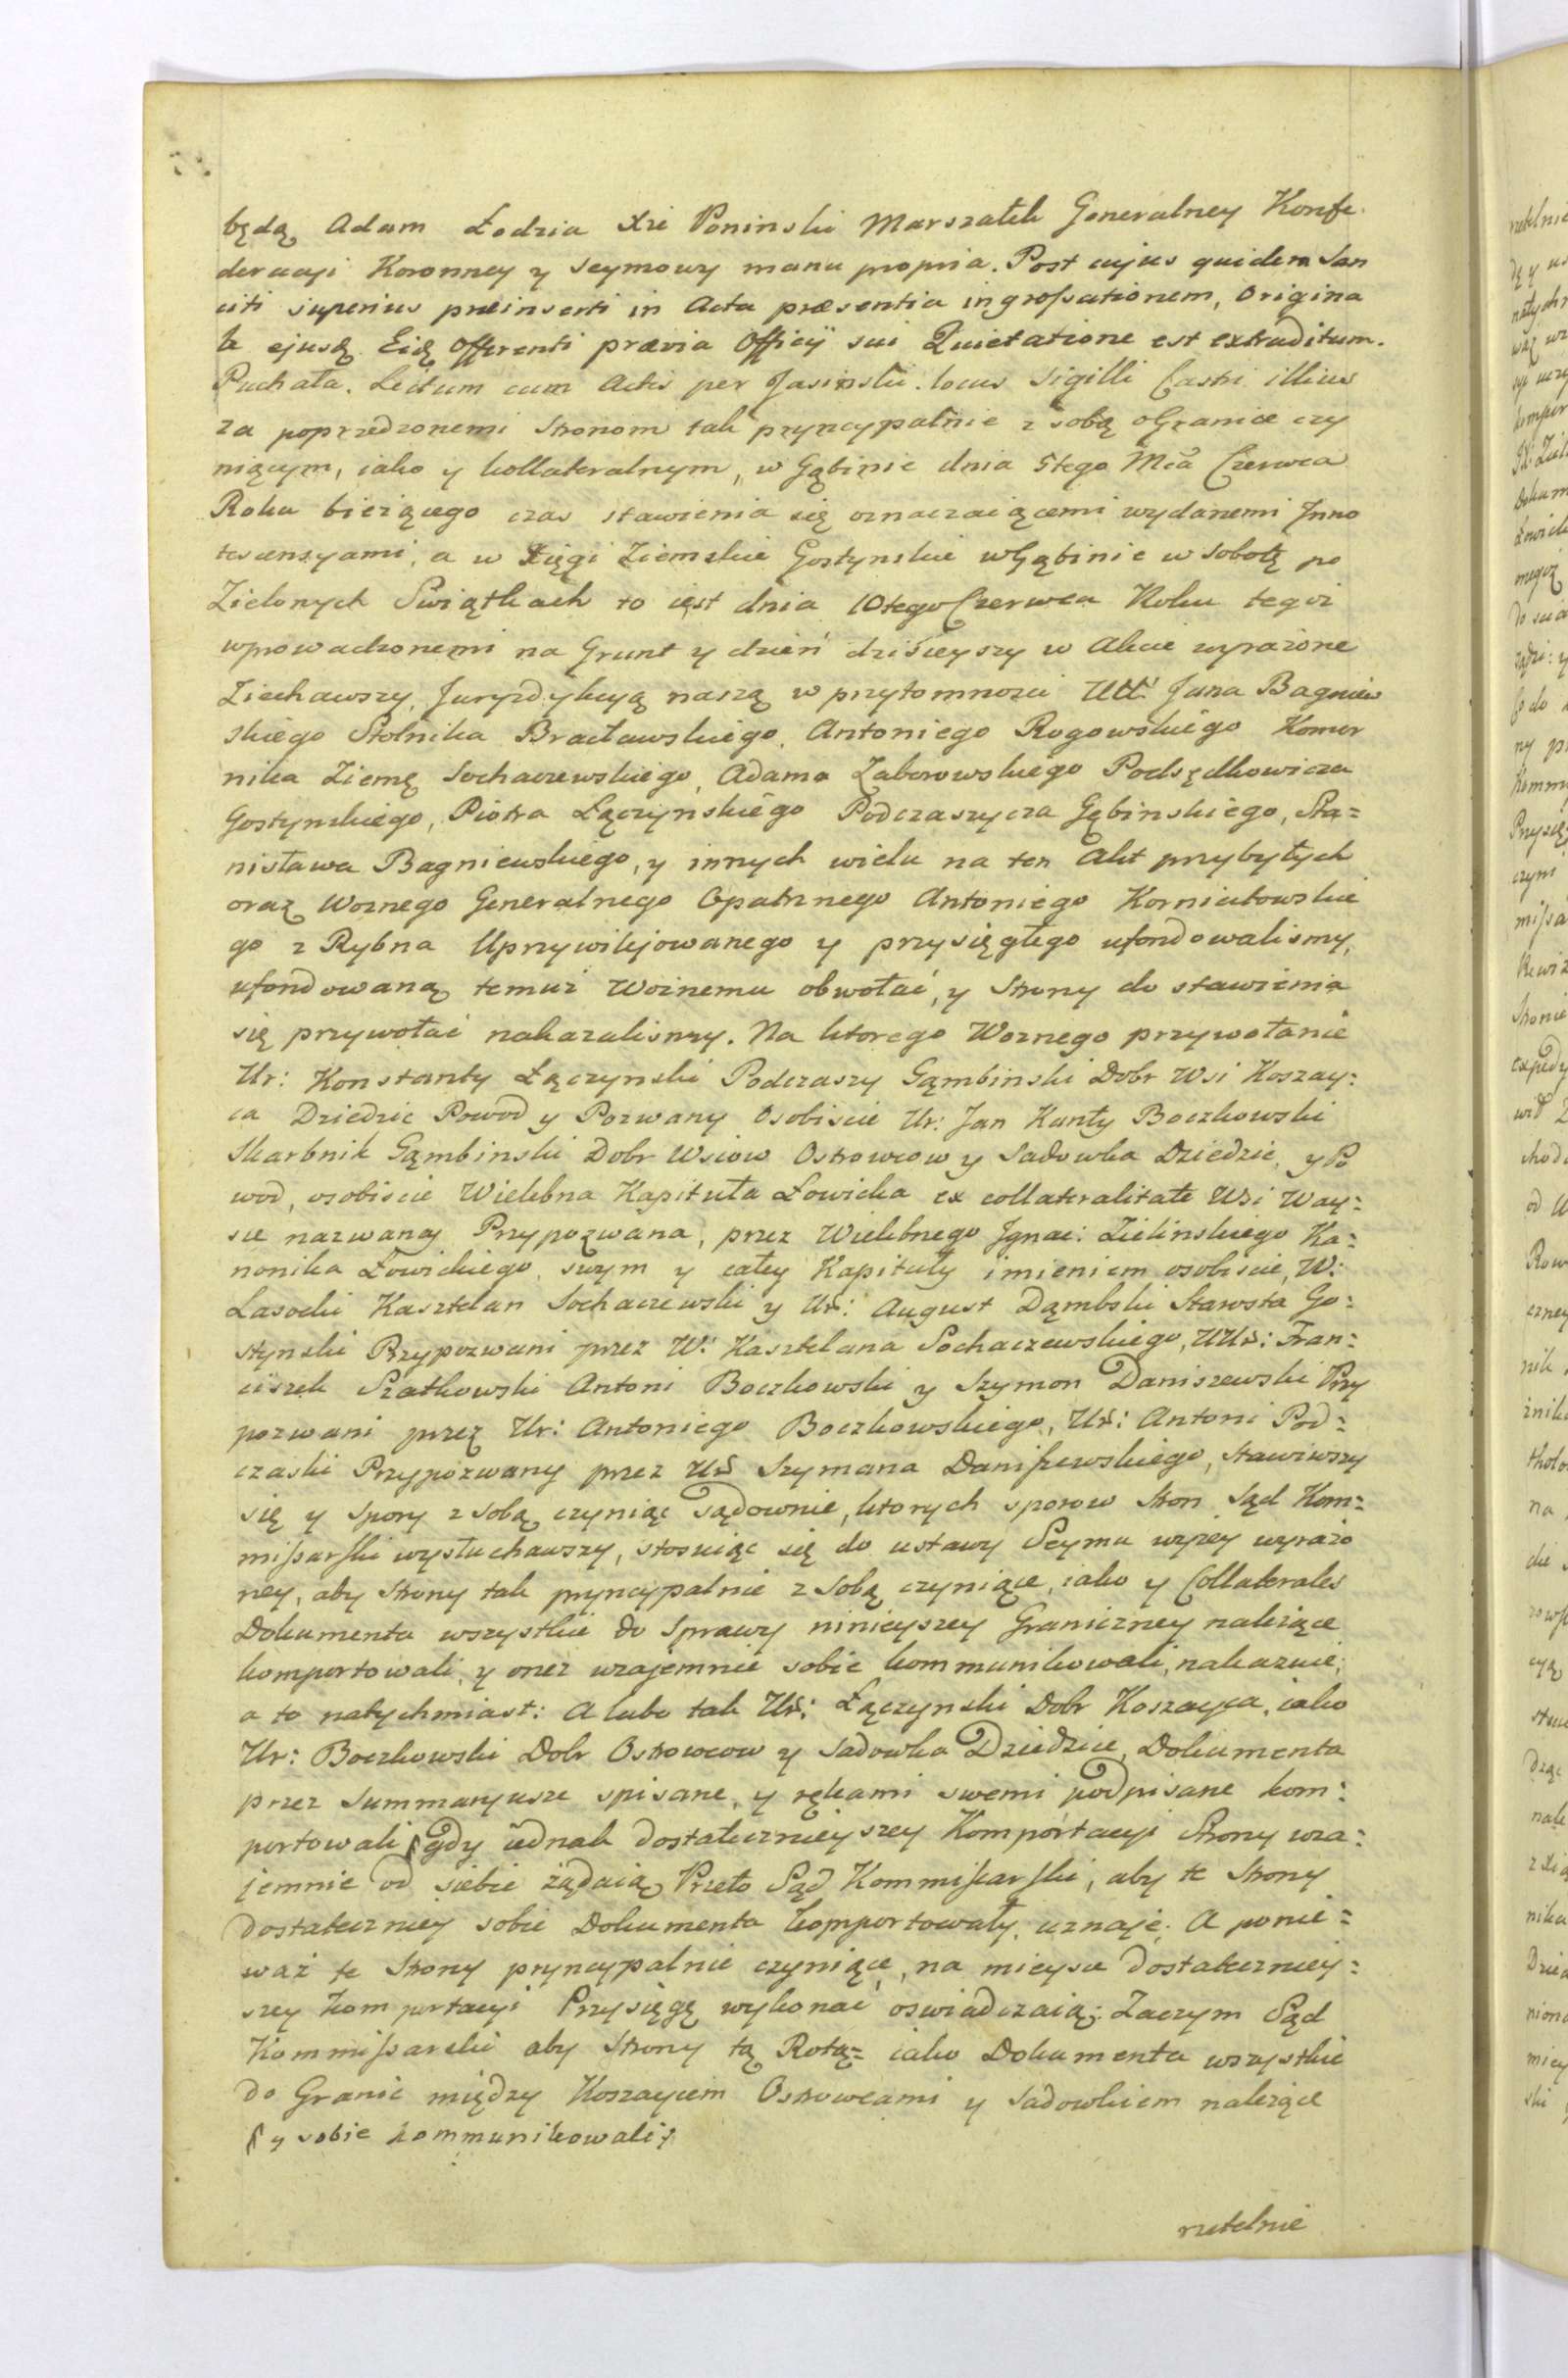 będą Adam Łodzia Xże Poninski Marszałek Generalney Konfe-
deracyi Koronney y Seymowy manu propria. Post cujus quidem San
citi superius præinserti in Acta præsentia ingroſsationem, Origina
le ejusdę Eidę Offerenti prævia Officÿ sui Quietatione est extraditum.
Puchała. Lectum cum Actis per Jasinski. locus Sigilli Castri illius
za poprzedzonemi Stronom tak pryncypalnie z sobą oGranice czy
niącym, iako y kollateralnym, w Gąbinie dnia 5tego Mca Czerwca
Roku bieżącego czas stawienia się oznaczaiącemi wydanemi Inno
tescensyami, a w Xięgi Ziemskie Gostynskie wGąbinie w Sobotę po
Zielonych Swiątkach to iest dnia 10tego Czerwca Roku tegoż
wprowadzonemi na Grunt y dzień dzisieyszy w Akcie wyrażone
Ziechawszy, Juryzdykcyą naszą w przytomnosci UU: Jana Bagniew
skiego Stolnika Bracławskiego, Antoniego Rogowskiego Komor
nika Ziemę Sochaczewskiego, Adama Zaborowskiego Podsędkowicza
Gostynskiego, Piotra Łączyńskiego Podczaszycza Gębinskiego, Sta=
nisława Bagniewskiego, y innych wielu na ten Akt przybyłych
oraz Woznego Generalnego Opatrznego Antoniego Korniatowskie
go z Rybna Uprzywilejowanego y przysięgłego ufondowalismy,
ufondowaną temuż Woźnemu obwołać, y Strony do stawienia
się przywołać nakazalismy. Na ktorego Woznego przywołanie
Ur: Konstanty Łączynski Podczaszy Gąmbinski Dobr Wsi Koszay:
ca Dziedzic Powod y Pozwany Osobiscie Ur: Jan Kanty Boczkowski
Skarbnik Gąmbinski Dobr Wsiow Ostrowcow y Sadowka Dziedzic, y Po
wod, osobiscie Wielebna Kapituła Łowicka ex collateralitate Wsi Way:
sce nazwaney Przypozwana, przez Wielebnego Jgnac: Zielinskiego Ka:
nonika Łowickiego, swym y całey Kapituły imieniem osobiscie, W:
Lasocki Kasztelan Sochaczewski y Ur: August Dąmbski Starosta Go:
stynski Przypozwani przez W: Kasztelana Sochaczewskiego, UUr: Fran:
ciszek Szatkowski Antoni Boczkowski y Szymon Daniszewski Przy
pozwani przez Ur: Antoniego Boczkowskiego, Ur: Antoni Pod=
czaski Przypozwany przez Ur Szymana Daniſzewskiego, stawiwszy
się y Spory z sobą czyniąc Sądownie, ktorych sporow Stron Sąd Kom=
miſsarſki wysłuchawszy, stosuiąc się do ustawy Seymu wyżey wyrażo
ney, aby Strony tak pryncypalnie z Sobą czyniące, iako y Collaterales
Dokumenta wszystkie do Sprawy ninieyszey Graniczney należące
komportowali, y onez wzajemnie sobie kommunikowali, nakazuie;
a to natychmiast: A lubo tak Ur: Łączynski Dobr Koszayca, iako
Ur: Boczkowski Dobr Ostrowcow y Sadowka Dziedzice, Dokumenta
przez Summaryusze spisane, y rękami swemi podpisane kom:
portowali ſ gdy iednak dostatecznieyszey Komportacyi Strony wza:
jemnie od siebie żądaią, Przeto Sąd Kommiſsarſki, aby te Strony
dostateczniey sobie Dokumenta komportowały, uznaje. A ponie=
waż te Strony pryncypalnie czyniące, na mieysce dostateczniey:
szey komportacyi Przysięgę wykonać oswiadczaią; Zaczym Sąd
Kommiſsarski aby Strony tą Rotą= iako Dokumenta wszystkie
do Granic między Koszaycem Ostrowcami y Sadowkiem należące
ſ y sobie kommunikowali;
rzetelnie